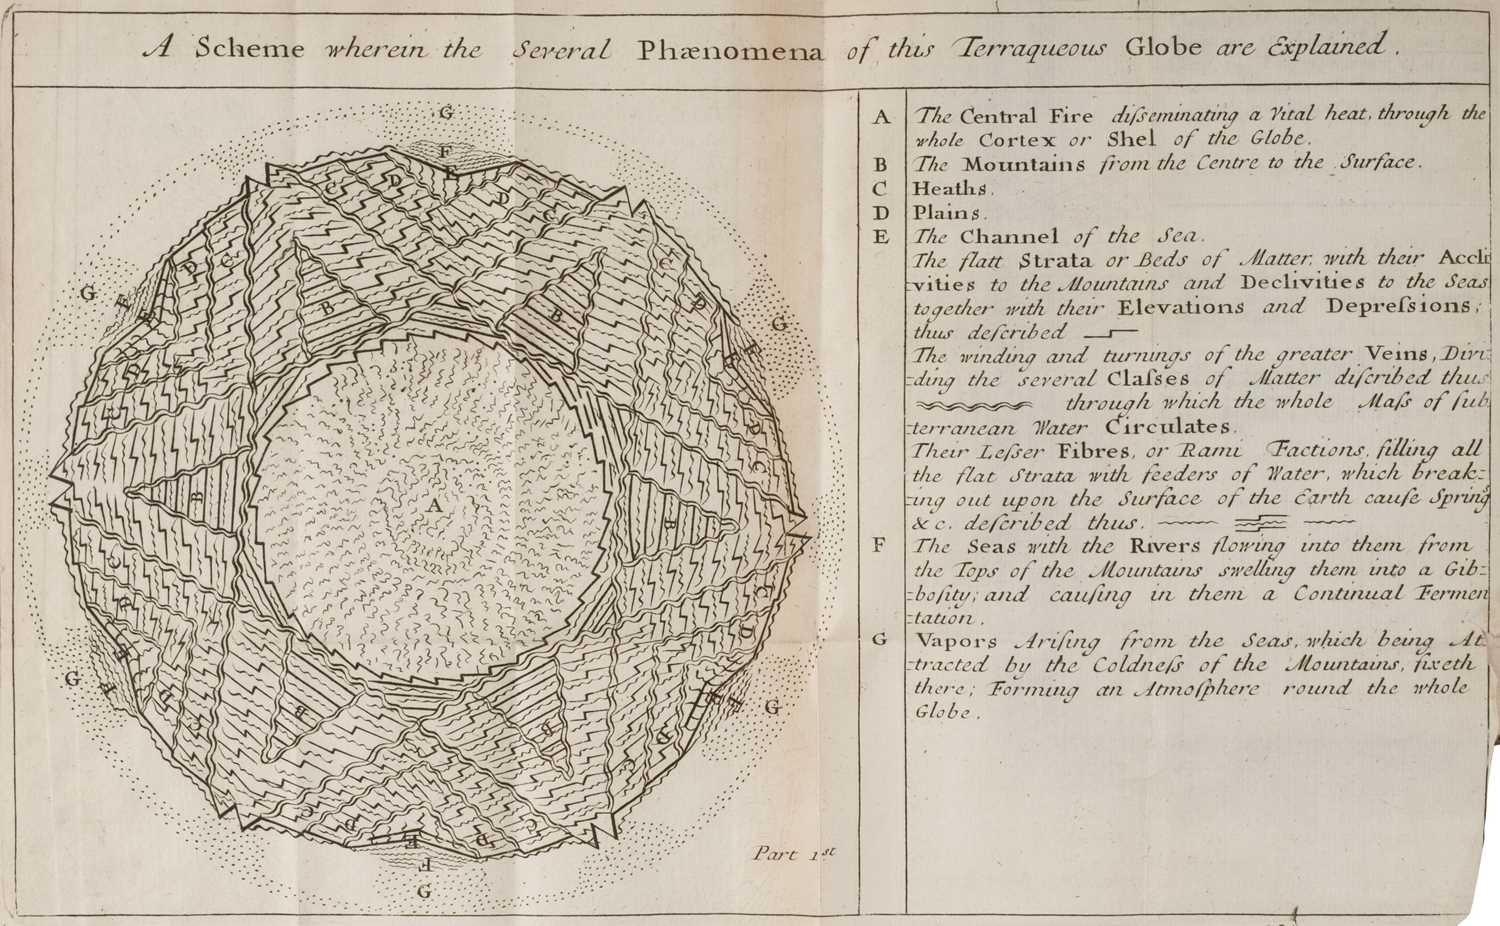 A Scheme wherein the Several Phænomena of this Terraqueous Globe are Explained.
A The Central Fire diſseminating a Vital heat, through the
whole Cortex or Shel of the Globe.
B The Mountains from the Centre to the Surface.
C Heaths.
D Plains.
E The Channel of the Sea.
The flatt Strata or Beds of Matter, with their Accli
=vities to the Mountains and Declivities to the Seas
together with their Elevations and Depreſsions;
thus deſcribed
The winding and turnings of the greater Veins, Divi=
=ding the several Claſses of Matter diſcribed thus
through which the whole Maſs of ſub=
=terranean Water Circulates.
Their Leſser Fibres, or Rami Factions, filling all
the flat Strata with feeders of Water, which break=
=ing out upon the Surface of the Earth cauſe Springs
& c. deſcribed thus.
F The Seas with the Rivers flowing into them from
the Tops of the Mountains swelling them into a Gib=
=boſity; and cauſing in them a Continual Fermen
=tation.
G Vapors Ariſing from the Seas, which being At=
=tracted by the Coldneſs of the Mountains, fixeth
there; Forming an Atmoſphere round the whole
Globe.
G
F
E
C D D C
D C C
G F E B B D G
E F
D
C D
B A B C
C C
D D
G F E E F G
D C B B D
C C
C D E D C
F
G
Part 1st